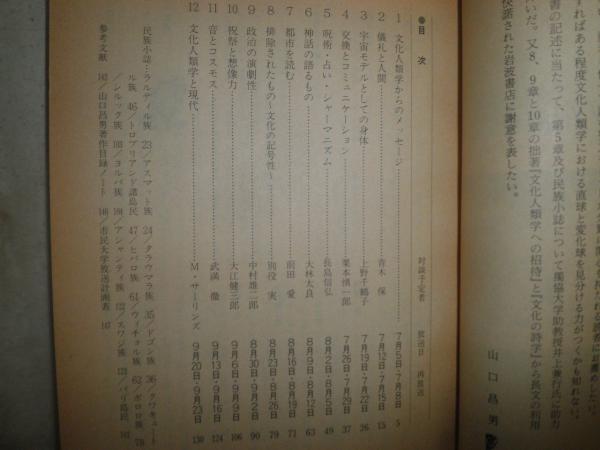 すればある程度文化人類学における直球と変化球を見分ける力がつくかも知れない。
書の記述に当たって、第5章及び民族小誌について獨協大学助教授井上兼行氏に助力
いだ。又8、9章と10章の拙著『文化人類学への招待』と『文化の詩学』から長文の利用
快諾された岩波書店に謝意を表したい。
山口昌男
●目 次
対談予定者 放送日 再放送
1 文化人類学からのメッセージ 7月5日・7月8日 5
2 儀礼と人間 青木 保 7月12日・7月15日 15
3 宇宙モデルとしての身体 上野千鶴子 7月19日・7月22日 26
4 交換とコミュニケーション 栗本慎一郎 7月26日・7月29日 37
5 呪術・占い・シャーマニズム 長島信弘 8月2日・8月5日 49
6 神話の語るもの 大林太良 8月9日・8月12日 63
7 都市を読む 前田 愛 8月16日・8月19日 71
8 排除されたもの〜文化の記号性〜 別役 実 8月23日・8月26日 79
9 政治の演劇性 中村雄二郎 8月30日・9月2日 90
10 祝祭と想像力 大江健三郎 9月6日・9月9日 106
11 音とコスモス 武満 徹 9月13日・9月16日 124
12 文化人類学と現代 M・サーリンズ 9月20日・9月23日 130
民族小誌：ラルディル族 23／アスマット族 24／クラウマラ族 35／ドゴン族 36／クワキュート
ル族 46／トロブリアンド諸島民 47／ヒバロ族 61／ウィチョル族 62／ボロロ族 78
／シルック族 103／ヨルバ族 104／アシャンティ族 122／スワジ族 123／バリ島民 141
参考文献 142／山口昌男著作目録ノート 146／市民大学放送計画表 147